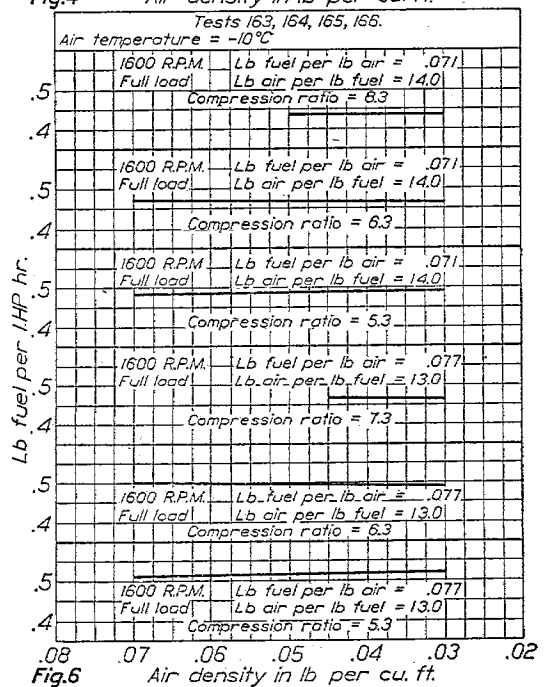 Fig.4 Air density in lb per cu. ft.
Tests 163, 164, 165, 166.
Air temperature = -10°C
1600 R.P.M. Lb fuel per lb air = .071
.5 Full load Lb air per lb fuel = 14.0
Compression ratio = 8.3
.4
1600 R.P.M. Lb fuel per lb air = .071
.5 Full load Lb air per lb fuel = 14.0
.4 Compression ratio = 6.3
1600 R.P.M. Lb fuel per lb air = .071
.5 Full load Lb air per lb fuel = 14.0
.4 Compression ratio = 5.3
Lb fuel per I.HP hr.
1600 R.P.M. Lb fuel per lb air = .077
.5 Full load Lb air per lb fuel = 13.0
.4 Compression ratio = 7.3
.5
1600 R.P.M. Lb fuel per lb air = .077
.4 Full load Lb air per lb fuel = 13.0
Compression ratio = 6.3
.5
1600 R.P.M. Lb fuel per lb air = .077
Full load Lb air per lb fuel = 13.0
.4 Compression ratio = 5.3
.08 .07 .06 .05 .04 .03 .02
Fig.6 Air density in lb per cu. ft.